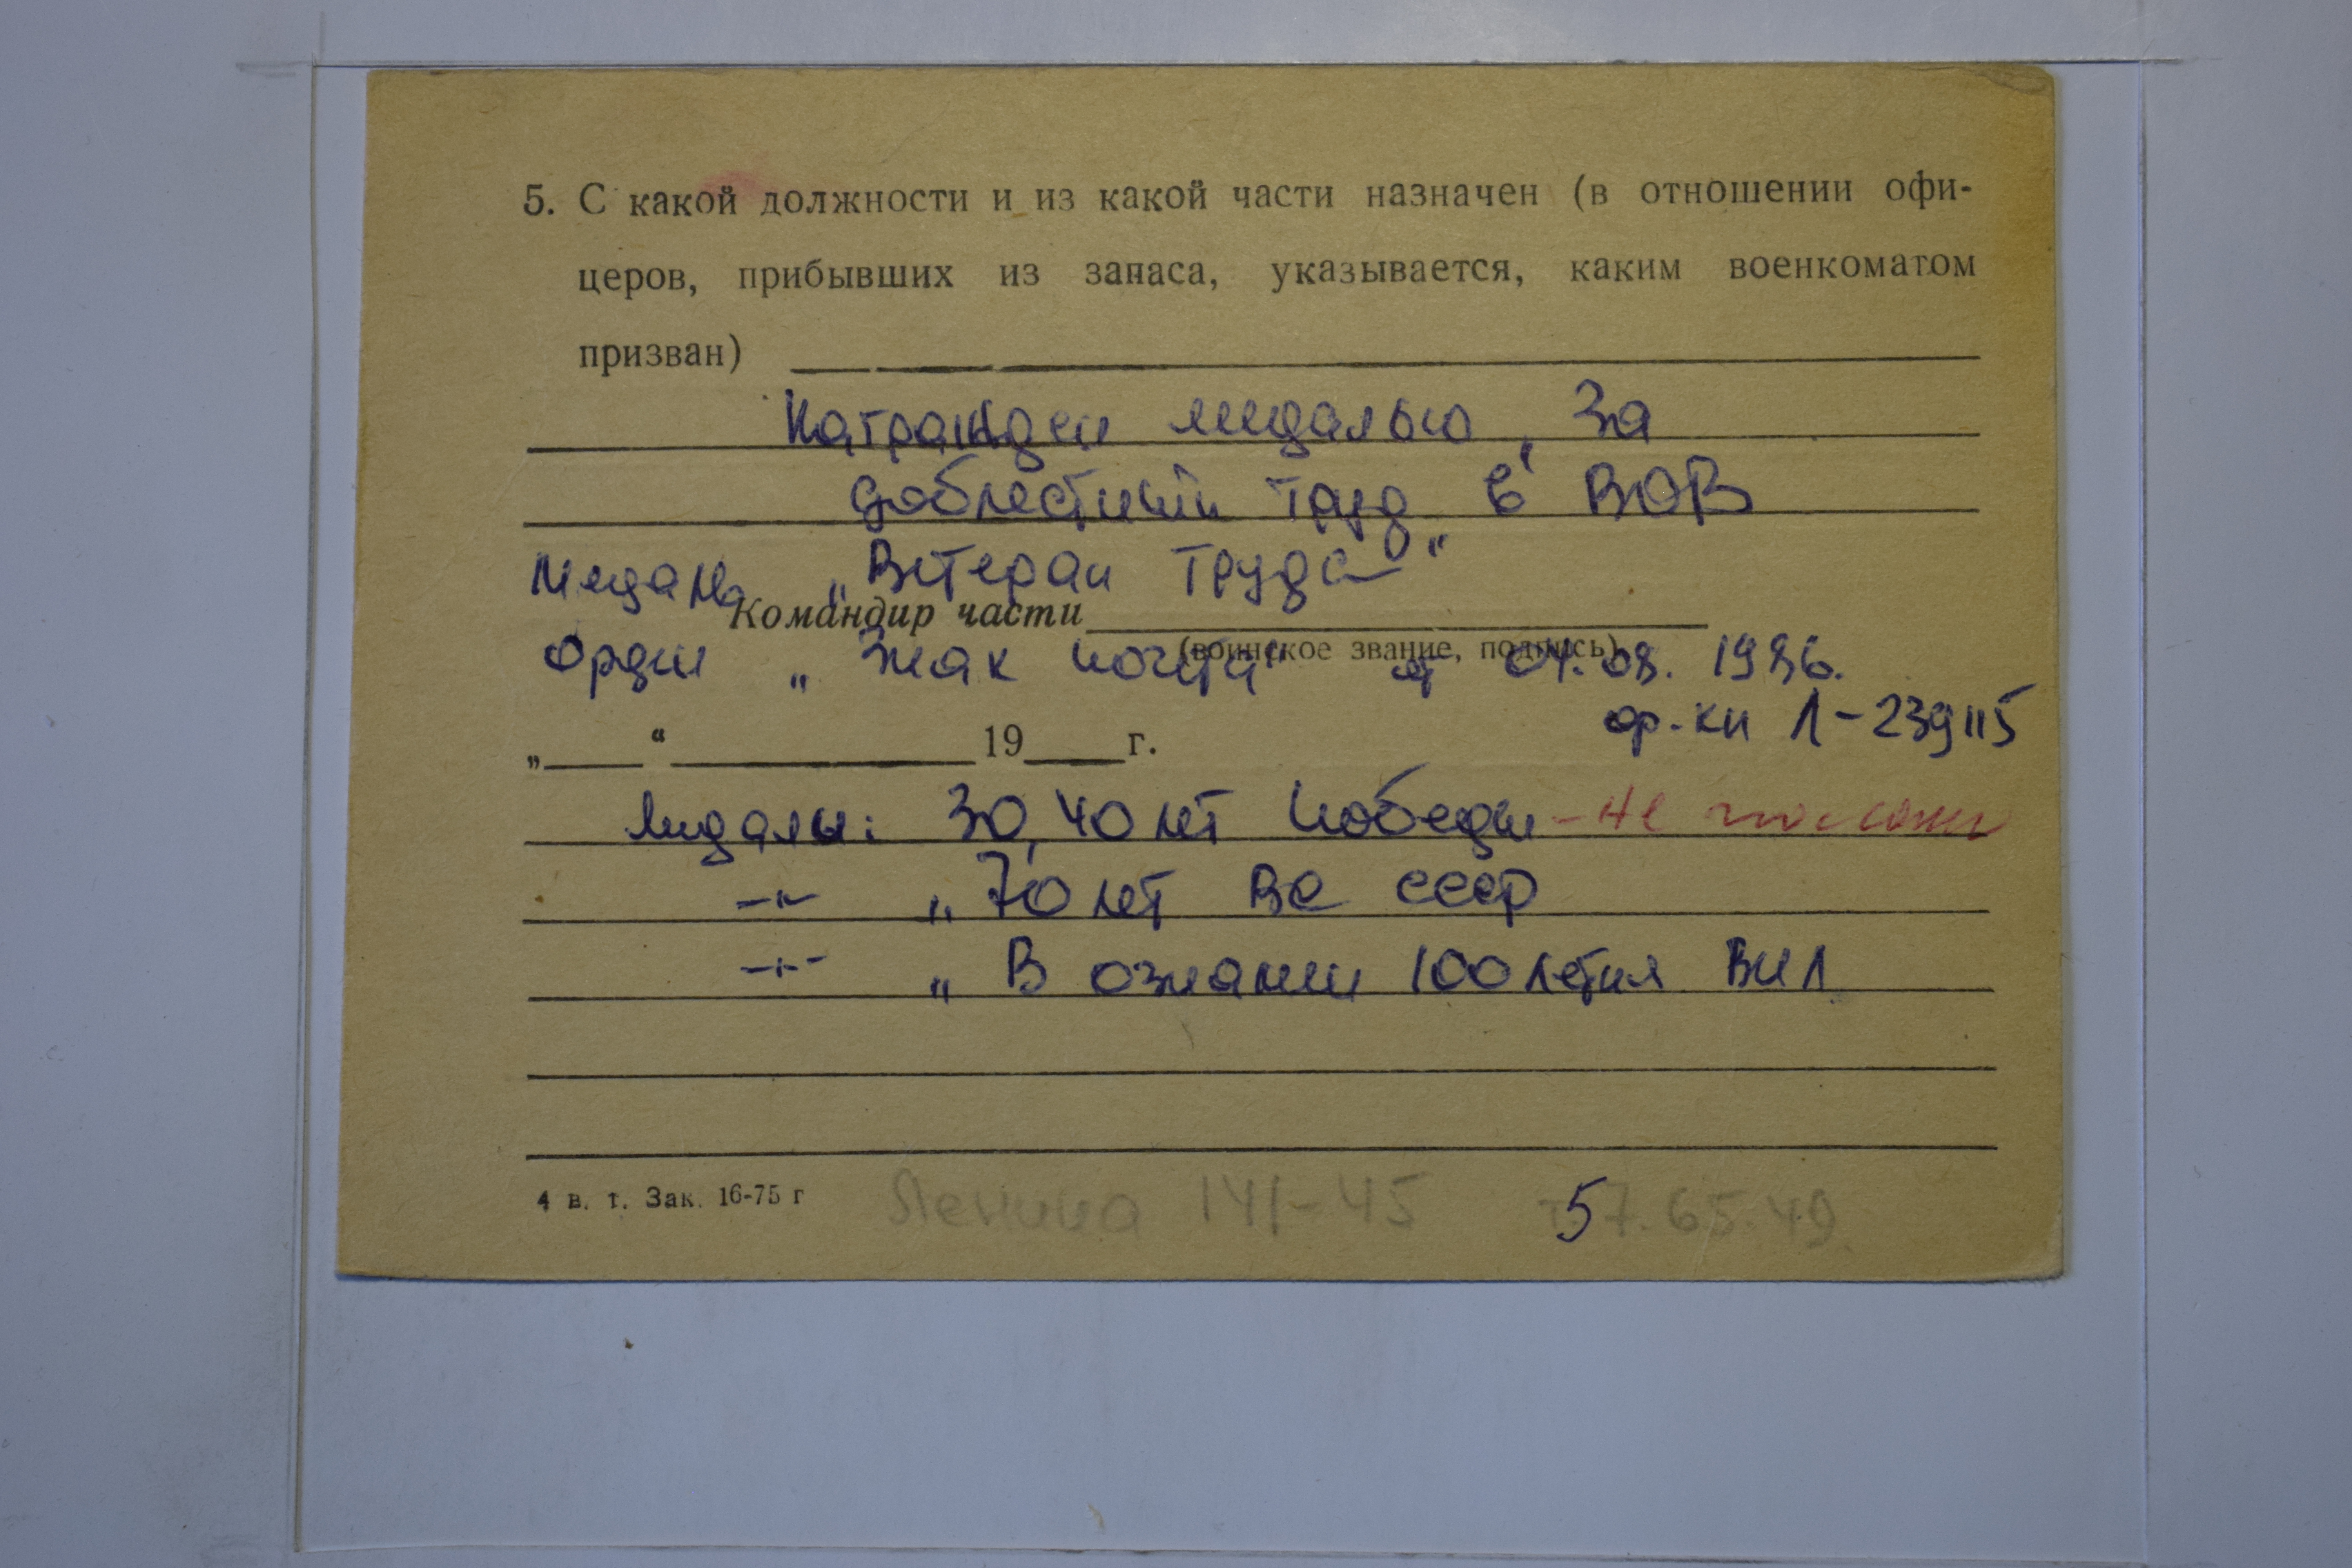 5. С какой должности и из какой части назначен (в отношении офи-
церов, прибывших из запаса, указывается, каким военкоматом
призван)
Награжден медалью „За
доблестный труд в ВОВ
Медаль „Ветеран труда"
Командир части
(воинское звание, подпись)
Орден „Знак почета" от 04.08. 1986.
ор. кн Л-239115
„ “ 19 г.
Медалы: 30, 40 лет Победы - не
-"- „ 70 лет ВС СССР
-"- „ В ознамен 100 летия ВИЛ
4 в. т. Зак. 16-75 г
Ленина 141-45 т. 57.65.49